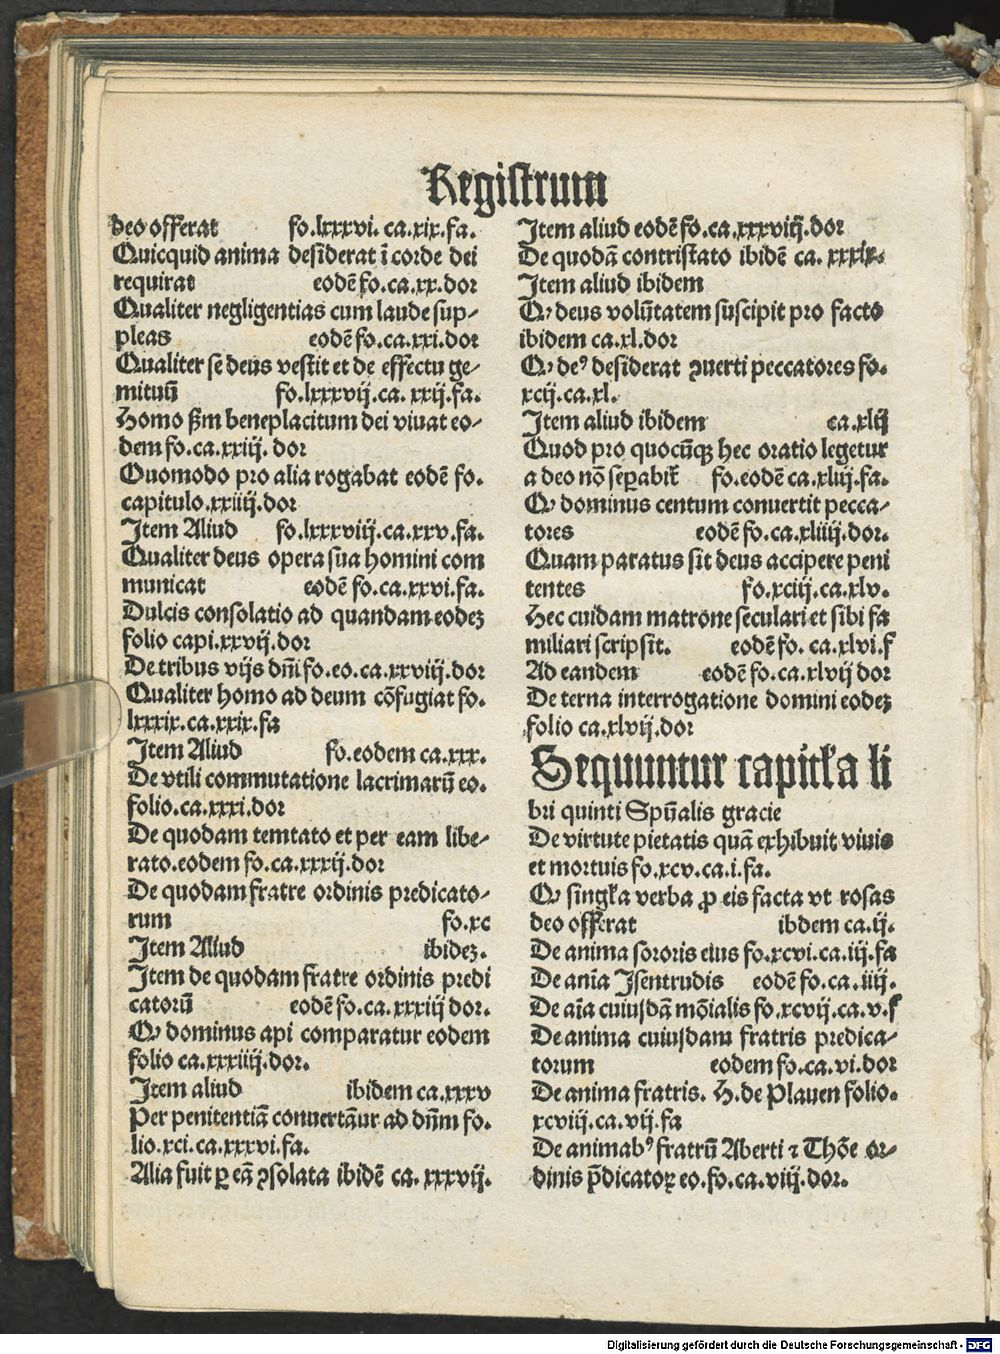 Registrum
deo offerat fo.lxxxvi. ca.xix.fa.
Quicquid anima desiderat ī corde dei
requirat eodē fo.ca.xx.dor
Qualiter negligentias cum laude sup-
pleas eodē fo.ca.xxi.dor
Qualiter se deus vestit et de effectu ge-
mituū fo.lxxxvij.ca. xxij.fa.
Homo ẜm beneplacitum dei viuat eo-
dem fo.ca.xxiij. dor
Quomodo pro alia rogabat eodē fo.
capitulo.xxiiij.dor
Item Aliud fo.lxxxviij.ca.xxv.fa.
Qualiter deus opera sua homini com
municat eodē fo.ca.xxvi.fa.
Dulcis consolatio ad quandam eodeꝫ
folio capi.xxvij.dor
De tribus vijs dn̄i fo.eo.ca.xxviij.dor
Qualiter homo ad deum cōfugiat fo.
lxxxix.ca.xxix.fa
Item Aliud fo.eodem ca.xxx.
De vtili commutatione lacrimarū eo.
folio.ca.xxxi.dor
De quodam temtato et per eam libe-
rato.eodem fo.ca.xxxij.dor
De quodam fratre ordinis predicato-
rum fo.xc
Item Aliud ibideꝫ.
Item de quodam fratre ordinis predi
catorū eodē fo.ca.xxxiij dor.
Ꝙ dominus api comparatur eodem
folio ca.xxxiiij.dor.
Item aliud ibidem ca.xxxv
Per penitentiā conuertāur ad dn̄m fo.
lio.xci.ca.xxxvi.fa.
Alia fuit ꝑ eā ꝯsolata ibidē ca. xxxvij.
Item aliud eodē fo.ca.xxxviij.dor
De quodā contristato ibidē ca. xxxix.
Item aliud ibidem
Ꝙ deus volūtatem suscipit pro facto
ibidem ca.xl.dor
Ꝙ deꝰ desiderat ꝯuerti peccatores fo.
xcij.ca.xl.
Item aliud ibidem ca.xlij
Quod pro quocūqꝫ hec oratio legetur
a deo nō seꝑabit᷑ fo.eodē ca.xliij.fa.
Ꝙ dominus centum conuertit pecca-
tores eodē fo.ca.xliiij.dor.
Quam paratus sit deus accipere peni
tentes fo.xciij.ca.xlv.
Hec cuidam matrone seculari et sibi fa
miliari scripsit. eodē fo. ca.xlvi.f
Ad eandem eodē fo.ca.xlvij dor
De terna interrogatione domini eodeꝫ
folio ca.xlvij.dor
Sequuntur capitła li
bri quinti Spūalis gracie
De virtute pietatis quā exhibuit viuis
et mortuis fo.xcv.ca.i.fa.
Ꝙ singła verba ꝓ eis facta vt rosas
deo offerat ibdem ca.ij.
De anima sororis eius fo.xcvi.ca.iij.fa
De anīa Isentrudis eodē fo.ca.iiij.
De aīa cuiusdā mōialis fo.xcvij.ca.v.f
De anima cuiusdam fratris predica-
torum eodem fo.ca.vi.dor
De anima fratris. H. de Plauen folio.
xcviij.ca.vij.fa
De animabꝰ fratrū Aberti ⁊ Thōe or-
dinis p̄dicatoꝝ eo.fo.ca.viij.dor.
Digitalisierung gefördert durch die Deutsche Forschungsgemeinschaft - DFG